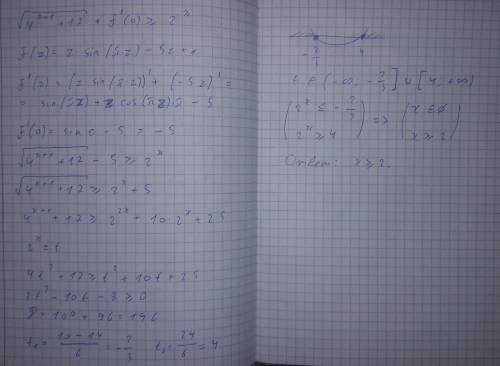 √(4^(x+1) + 17) + f'(0) ≥ 2^x
f(z) = z sin(πz) - 5z + 1
f'(z) = (z sin(πz))' + (-5z)' =
= sin(πz) + z cos(πz)π - 5
f'(0) = sin 0 - 5 = -5
√(4^(x+1) + 17) - 5 ≥ 2^x
√(4^(x+1) + 17) ≥ 2^x + 5
4^(x+1) + 17 ≥ 2^(2x) + 10·2^x + 25
2^x = t
4t² + 17 ≥ t² + 10t + 25
3t² - 10t - 8 ≥ 0
D = 100 + 96 = 196
t₁ = (10 - 14)/6 = -2/3 t₂ = 24/6 = 4
-2/3 4
t ∈ (-∞; -2/3] ∪ [4; +∞)
(2^x ≤ -2/3 => (x ∈ ∅
2^x ≥ 4 x ≥ 2
Ответ: x ≥ 2.